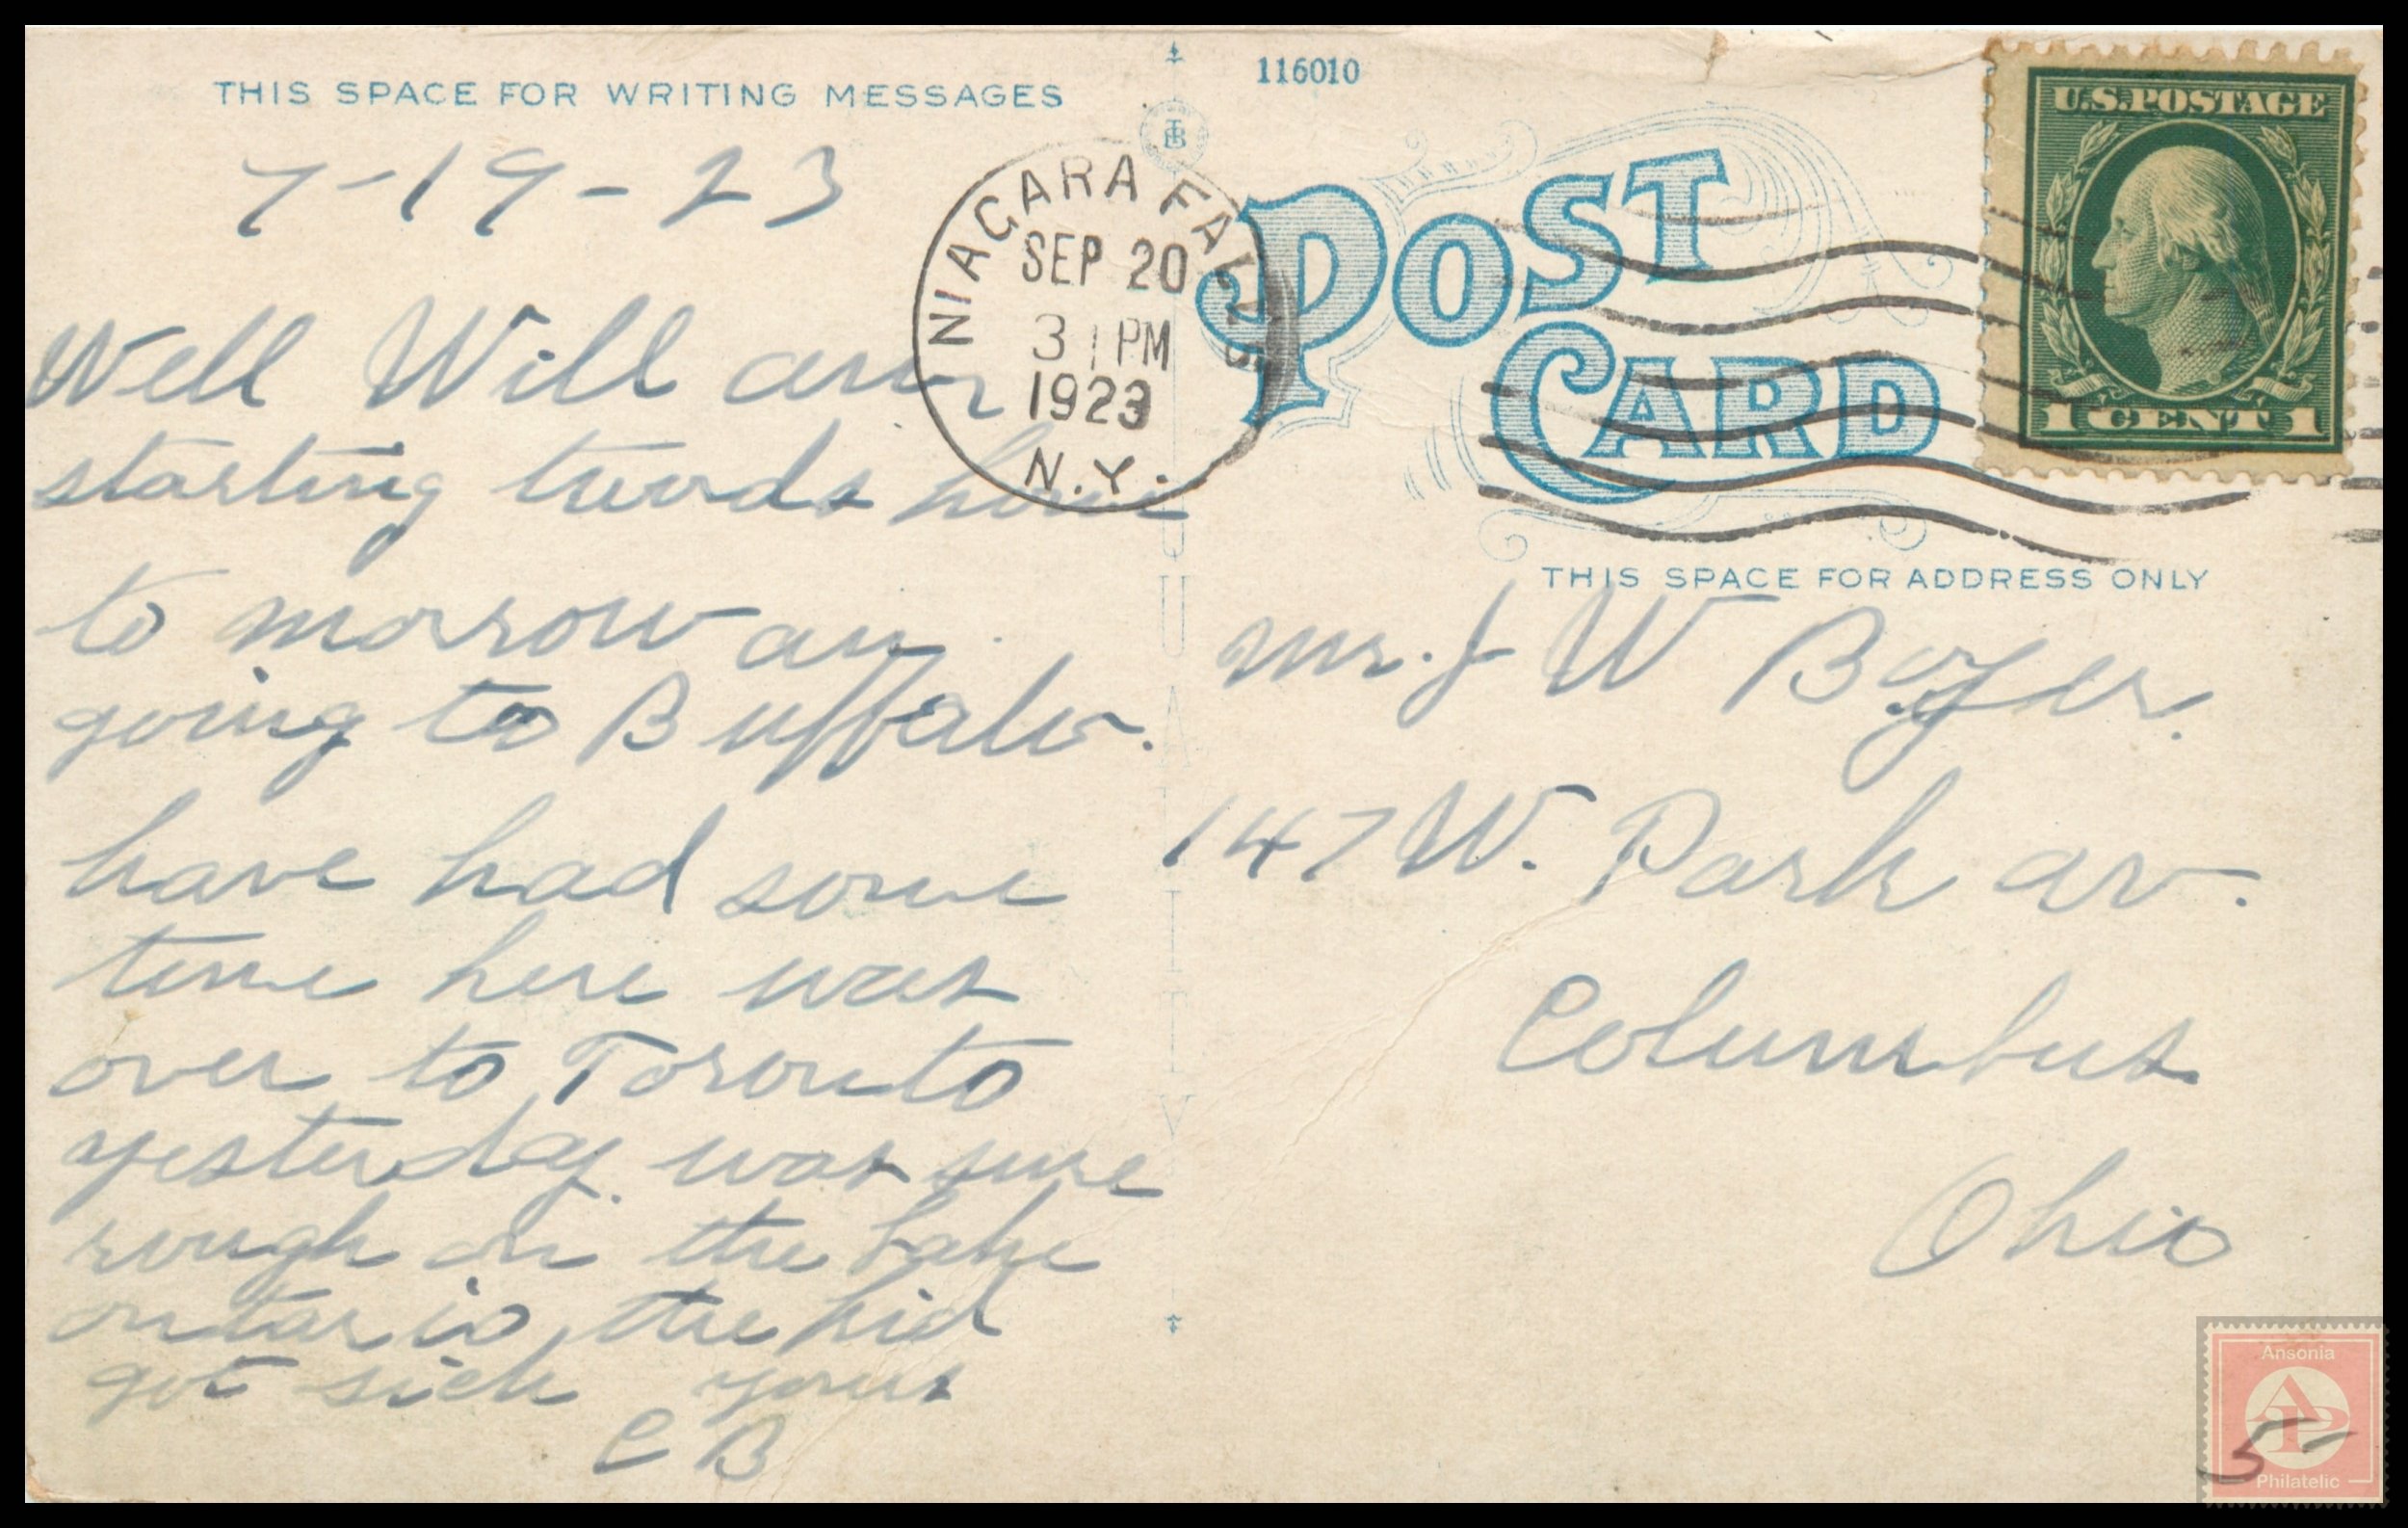 THIS SPACE FOR WRITING MESSAGES
116010
U.S. POSTAGE
1 CENT 1
7-19-23
NIAGARA FALLS
SEP 20
3 PM
1923
N.Y.
POST
CARD
Well Will am
starting towards home
to morrow am
going to Buffalo.
have had some
time here was
over to Toronto
yesterday was sure
rough on the Lake
ontario the kid
got sick yours
C B
THIS SPACE FOR ADDRESS ONLY
Mr. J W Boyer.
147 W. Park av.
Columbus
Ohio
Ansonia
AP
Philatelic
5-